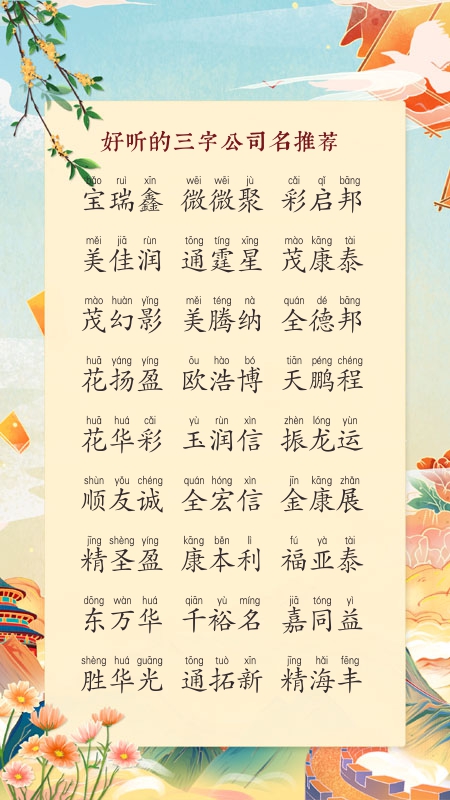 好听的三字公司名推荐
bǎo ruì xīn wēi wēi jù cǎi qǐ bāng
宝瑞鑫 微微聚 彩启邦
měi jiā rùn tōng tíng xīng mào kāng tài
美佳润 通霆星 茂康泰
mào huàn yǐng měi téng nà quán dé bāng
茂幻影 美腾纳 全德邦
huā yáng yíng ōu hào bó tiān péng chéng
花扬盈 欧浩博 天鹏程
huā huá cǎi yù rùn xìn zhèn lóng yùn
花华彩 玉润信 振龙运
shùn yǒu chéng quán hóng xìn jīn kāng zhǎn
顺友诚 全宏信 金康展
jīng shèng yíng kāng běn lì fú yà tài
精圣盈 康本利 福亚泰
dōng wàn huá qiān yù míng jiā tóng yì
东万华 千裕名 嘉同益
shèng huá guāng tōng tuò xīn jīng hǎi fēng
胜华光 通拓新 精海丰